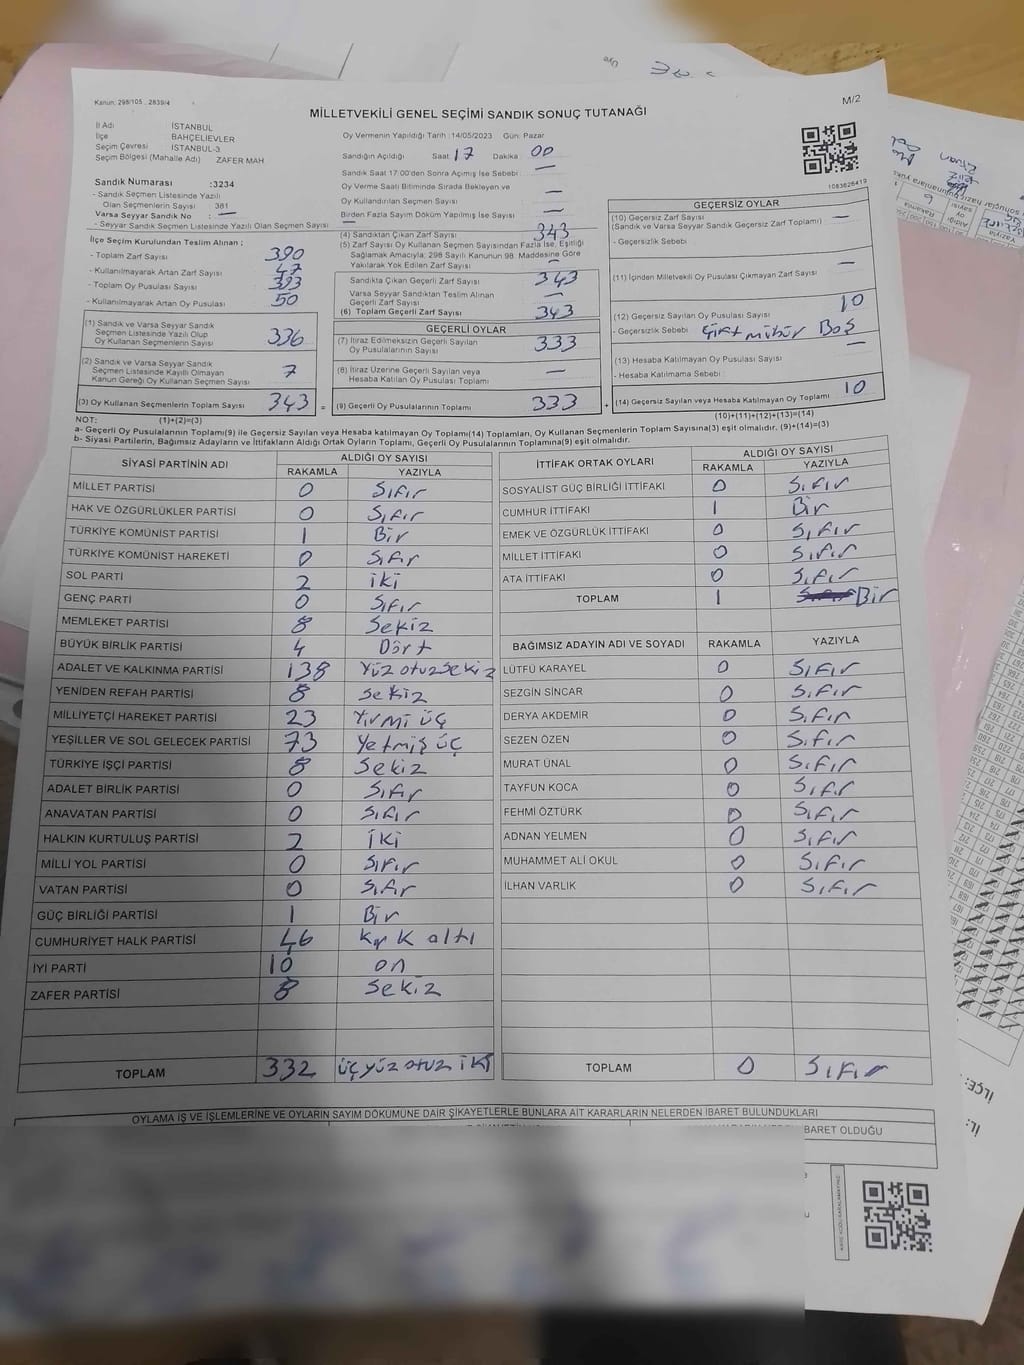 Kanun: 298/105 , 2839/4
M/2
MİLLETVEKİLİ GENEL SEÇİMİ SANDIK SONUÇ TUTANAĞI
İl Adı İSTANBUL
İlçe BAHÇELİEVLER
Seçim Çevresi İSTANBUL-3
Seçim Bölgesi (Mahalle Adı) ZAFER MAH
Sandık Numarası :3234
- Sandık Seçmen Listesinde Yazılı
Olan Seçmenlerin Sayısı 381
Varsa Seyyar Sandık No : —
- Seyyar Sandık Seçmen Listesinde Yazılı Olan Seçmen Sayısı —
İlçe Seçim Kurulundan Teslim Alınan ;
- Toplam Zarf Sayısı 390
- Kullanılmayarak Artan Zarf Sayısı 47
- Toplam Oy Pusulası Sayısı 393
- Kullanılmayarak Artan Oy Pusulası 50
(1) Sandık ve Varsa Seyyar Sandık
Seçmen Listesinde Yazılı Olup
Oy Kullanan Seçmenlerin Sayısı 336
(2) Sandık ve Varsa Seyyar Sandık
Seçmen Listesinde Kayıtlı Olmayan
Kanun Gereği Oy Kullanan Seçmen Sayısı 7
(3) Oy Kullanan Seçmenlerin Toplam Sayısı 343 =
(1)+(2)=(3)
Oy Vermenin Yapıldığı Tarih :14/05/2023 Gün: Pazar
Sandığın Açıldığı Saat 17 Dakika 00
Sandık Saat 17:00'den Sonra Açılmış İse Sebebi : —
Oy Verme Saati Bitiminde Sırada Bekleyen ve
Oy Kullandırılan Seçmen Sayısı —
Birden Fazla Sayım Döküm Yapılmış İse Sayısı —
(4) Sandıktan Çıkan Zarf Sayısı 343
(5) Zarf Sayısı Oy Kullanan Seçmen Sayısından Fazla İse, Eşitliği
Sağlamak Amacıyla; 298 Sayılı Kanunun 98. Maddesine Göre
Yakılarak Yok Edilen Zarf Sayısı —
Sandıkta Çıkan Geçerli Zarf Sayısı 343
Varsa Seyyar Sandıktan Teslim Alınan
Geçerli Zarf Sayısı —
(6) Toplam Geçerli Zarf Sayısı 343
GEÇERLİ OYLAR
(7) İtiraz Edilmeksizin Geçerli Sayılan
Oy Pusulalarının Sayısı 333
(8) İtiraz Üzerine Geçerli Sayılan veya
Hesaba Katılan Oy Pusulası Toplamı —
(9) Geçerli Oy Pusulalarının Toplamı 333 +
1083626419
GEÇERSİZ OYLAR
(10) Geçersiz Zarf Sayısı —
(Sandık ve Varsa Seyyar Sandık Geçersiz Zarf Toplamı)
- Geçersizlik Sebebi
(11) İçinden Milletvekili Oy Pusulası Çıkmayan Zarf Sayısı —
(12) Geçersiz Sayılan Oy Pusulası Sayısı 10
- Geçersizlik Sebebi : Çift mühür Boş
(13) Hesaba Katılmayan Oy Pusulası Sayısı —
- Hesaba Katılmama Sebebi :
(14) Geçersiz Sayılan veya Hesaba Katılmayan Oy Toplamı 10
(10)+(11)+(12)+(13)=(14)
NOT:
a- Geçerli Oy Pusulalarının Toplamı(9) ile Geçersiz Sayılan veya Hesaba Katılmayan Oy Toplamı(14) Toplamları, Oy Kullanan Seçmenlerin Toplam Sayısına(3) eşit olmalıdır. (9)+(14)=(3)
b- Siyasi Partilerin, Bağımsız Adayların ve İttifakların Aldığı Ortak Oyların Toplamı, Geçerli Oy Pusulalarının Toplamına(9) eşit olmalıdır.
SİYASİ PARTİNİN ADI ALDIĞI OY SAYISI
RAKAMLA YAZIYLA
MİLLET PARTİSİ 0 Sıfır
HAK VE ÖZGÜRLÜKLER PARTİSİ 0 Sıfır
TÜRKİYE KOMÜNİST PARTİSİ 1 Bir
TÜRKİYE KOMÜNİST HAREKETİ 0 Sıfır
SOL PARTİ 2 iki
GENÇ PARTİ 0 Sıfır
MEMLEKET PARTİSİ 8 Sekiz
BÜYÜK BİRLİK PARTİSİ 4 Dört
ADALET VE KALKINMA PARTİSİ 138 Yüz otuz sekiz
YENİDEN REFAH PARTİSİ 8 sekiz
MİLLİYETÇİ HAREKET PARTİSİ 23 Yirmi üç
YEŞİLLER VE SOL GELECEK PARTİSİ 73 Yetmiş üç
TÜRKİYE İŞÇİ PARTİSİ 8 Sekiz
ADALET BİRLİK PARTİSİ 0 Sıfır
ANAVATAN PARTİSİ 0 Sıfır
HALKIN KURTULUŞ PARTİSİ 2 iki
MİLLİ YOL PARTİSİ 0 Sıfır
VATAN PARTİSİ 0 Sıfır
GÜÇ BİRLİĞİ PARTİSİ 1 Bir
CUMHURİYET HALK PARTİSİ 46 Kırk altı
İYİ PARTİ 10 on
ZAFER PARTİSİ 8 Sekiz
TOPLAM 332 üçyüz otuz iki
İTTİFAK ORTAK OYLARI ALDIĞI OY SAYISI
RAKAMLA YAZIYLA
SOSYALİST GÜÇ BİRLİĞİ İTTİFAKI 0 Sıfır
CUMHUR İTTİFAKI 1 Bir
EMEK VE ÖZGÜRLÜK İTTİFAKI 0 Sıfır
MİLLET İTTİFAKI 0 Sıfır
ATA İTTİFAKI 0 Sıfır
TOPLAM 1 Bir
BAĞIMSIZ ADAYIN ADI VE SOYADI RAKAMLA YAZIYLA
LÜTFÜ KARAYEL 0 Sıfır
SEZGİN SİNCAR 0 Sıfır
DERYA AKDEMİR 0 Sıfır
SEZEN ÖZEN 0 Sıfır
MURAT ÜNAL 0 Sıfır
TAYFUN KOCA 0 Sıfır
FEHMİ ÖZTÜRK 0 Sıfır
ADNAN YELMEN 0 Sıfır
MUHAMMET ALİ OKUL 0 Sıfır
İLHAN VARLIK 0 Sıfır
TOPLAM 0 Sıfır
OYLAMA İŞ VE İŞLEMLERİNE VE OYLARIN SAYIM DÖKÜMÜNE DAİR ŞİKAYETLERLE BUNLARA AİT KARARLARIN NELERDEN İBARET BULUNDUKLARI
BARET OLDUĞU
İLÇE:
İL: